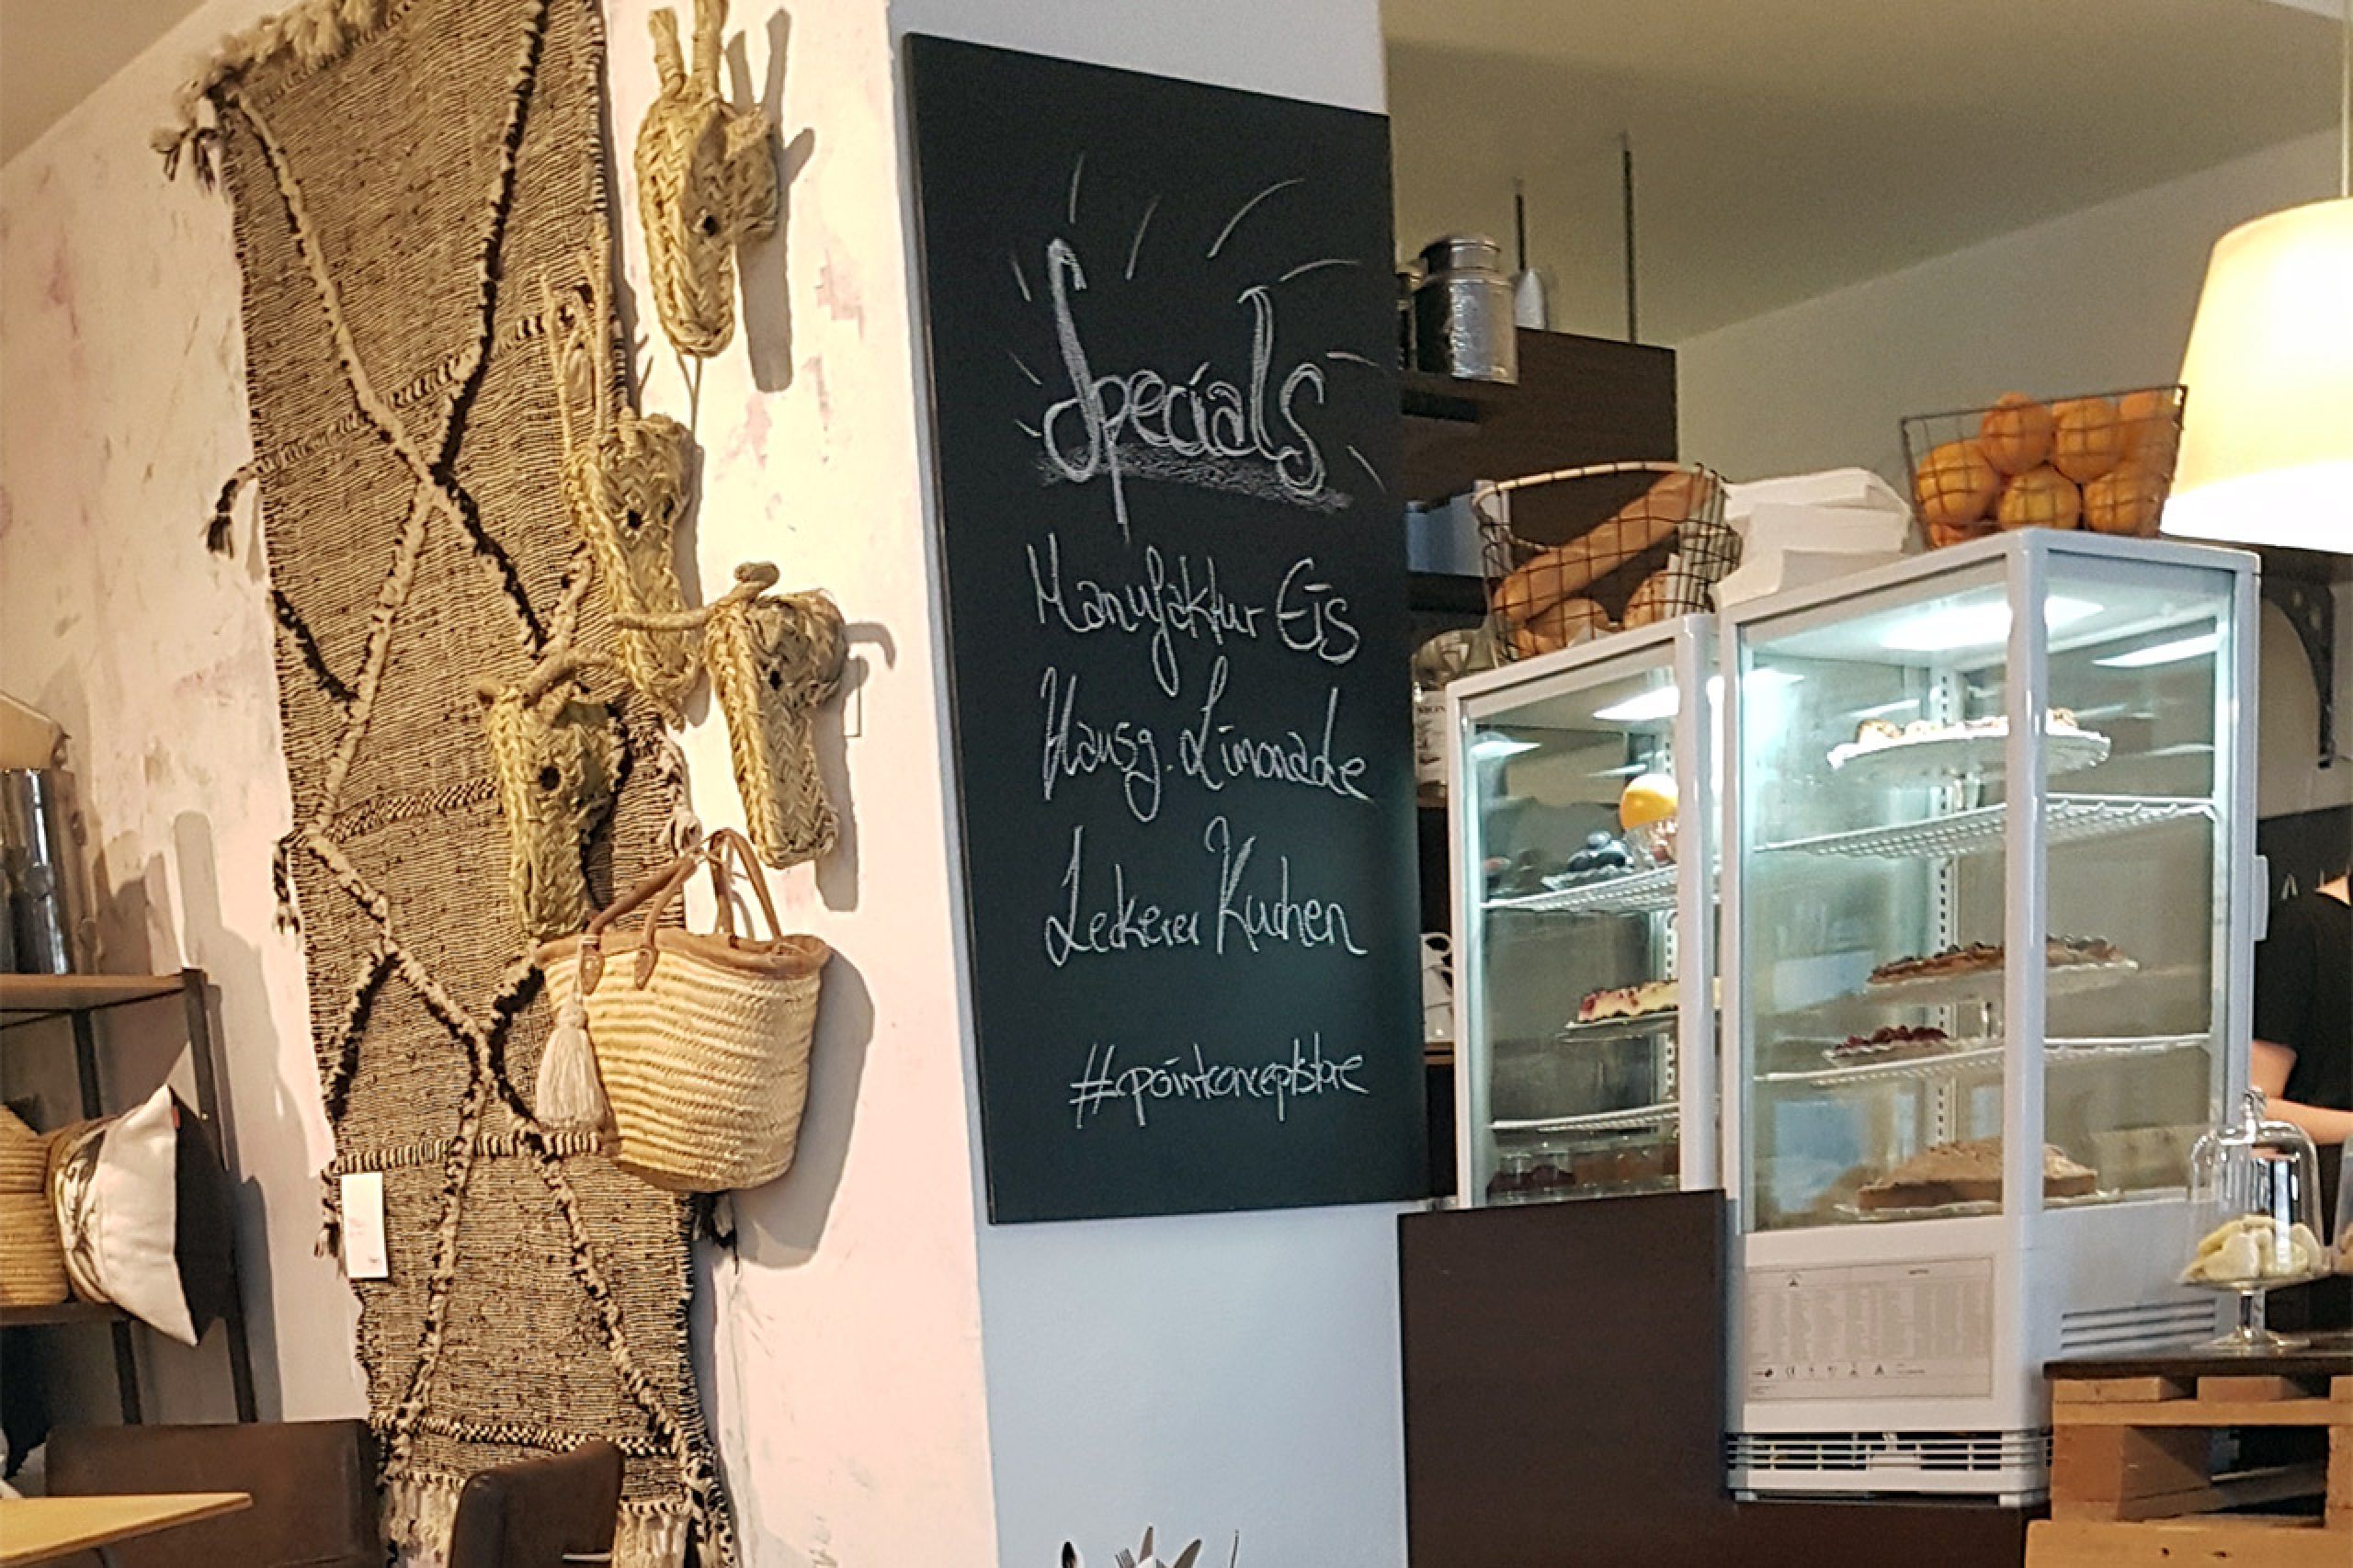 Specials
Manufaktur Eis
Hausg. Limonade
Leckerer Kuchen
#pointconceptstore